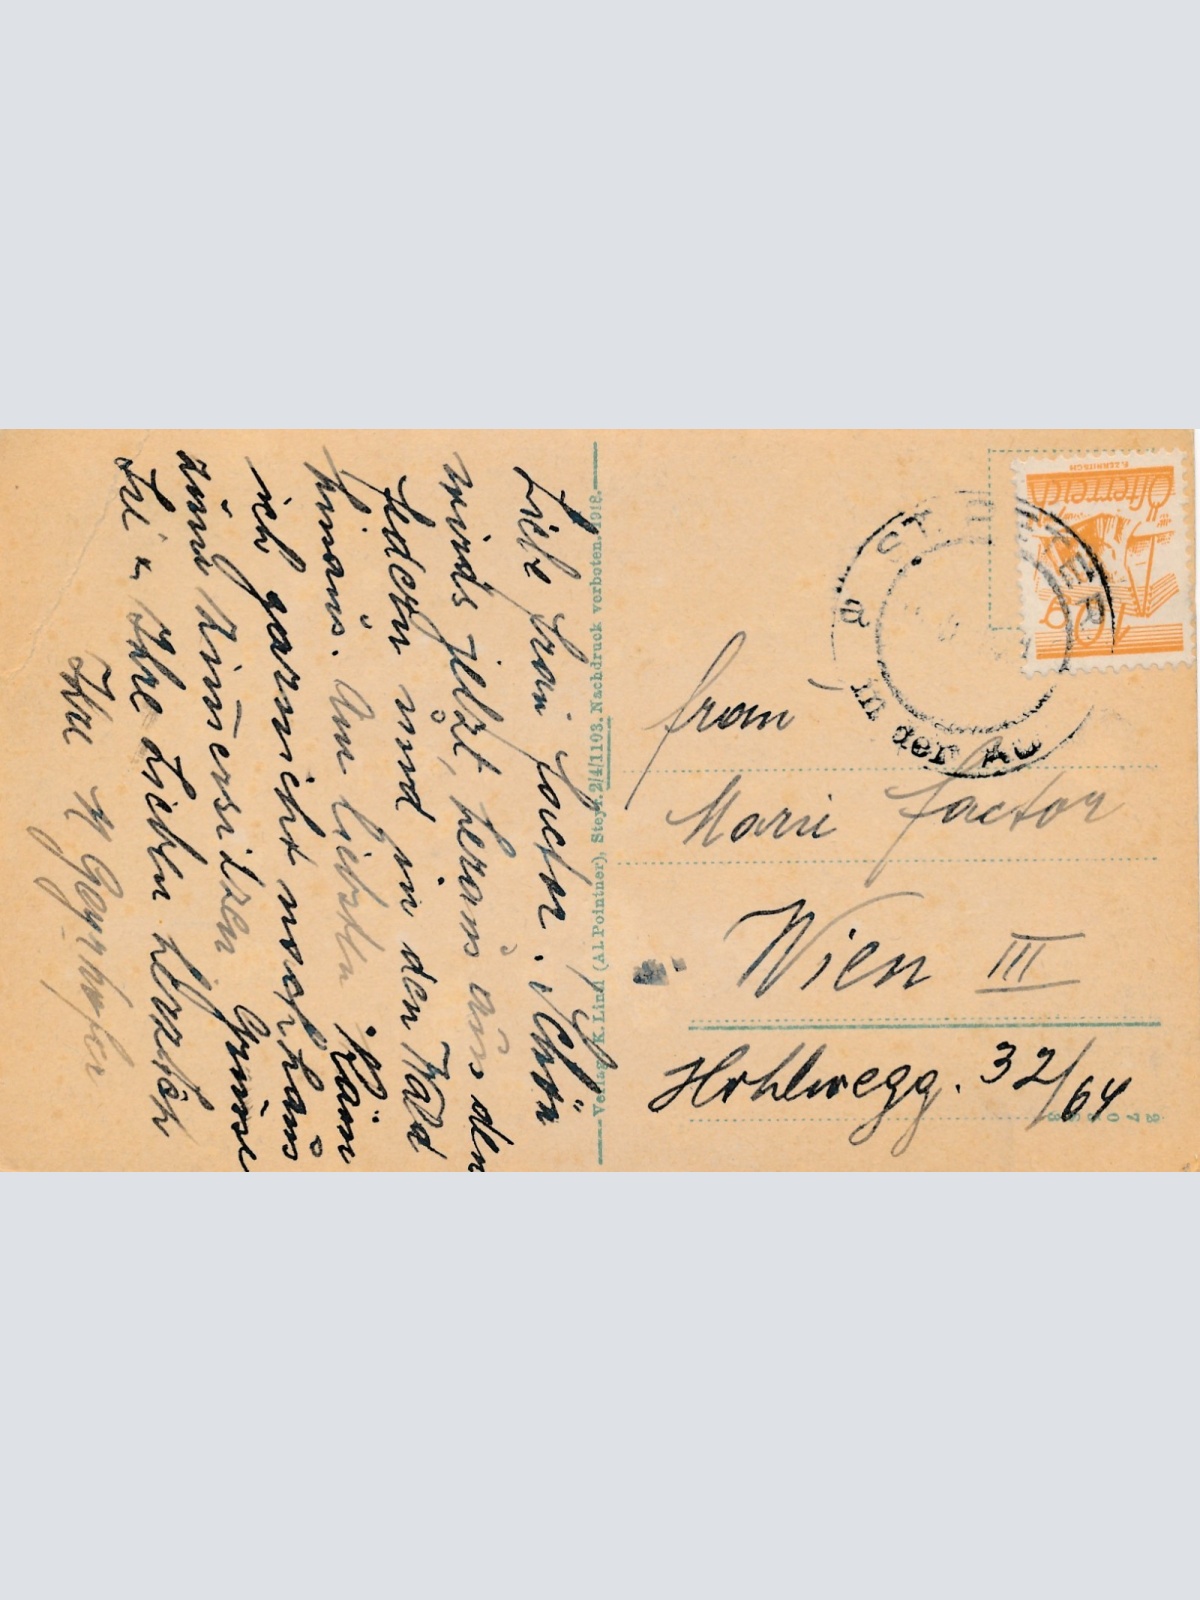 Liebe Frau Factor. Schön
wird's jetzt, heraus aus den
Federn und in den Wald
hinaus. Am liebsten käm
ich garnicht nach Haus
zum Zimmersitzen Grüsse
Sie u. Ihre Lieben herzlich
Ihre
Verlag K. Lindl (Al. Pointner), Steyr. 2/4/1193. Nachdruck verboten. 1918.
Österreich
10g
a
in der Au
Frau
Marie Factor
Wien III
Hohlwegg. 32/64